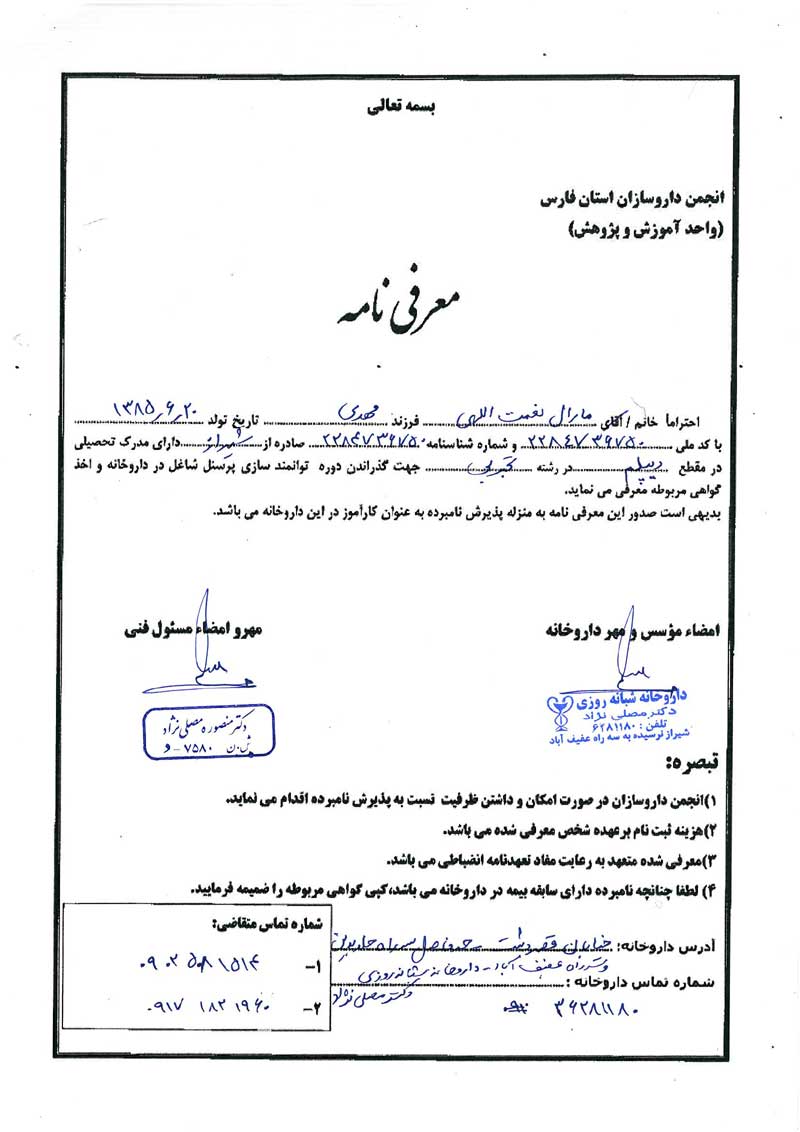 بسمه تعالی
انجمن داروسازان استان فارس
(واحد آموزش و پژوهش)
معرفی نامه
احتراماً خانم / آقای مارال نعمت اللهی فرزند مهدی تاریخ تولد ۱۳۸۵٫۶٫۲۰
با کد ملی ۲۲۸۴۷۳۹۷۵۰ و شماره شناسنامه ۲۲۸۴۷۳۹۷۵۰ صادره از شیراز دارای مدرک تحصیلی
در مقطع دیپلم در رشته تجربی جهت گذراندن دوره توانمند سازی پرسنل شاغل در داروخانه و اخذ
گواهی مربوطه معرفی می نماید.
بدیهی است صدور این معرفی نامه به منزله پذیرش نامبرده به عنوان کارآموز در این داروخانه می باشد.
امضاء مؤسس و مهر داروخانه
مهرو امضاء مسئول فنی
داروخانه شبانه روزی
دکتر مصلی نژاد
تلفن : ۶۲۸۱۱۸۰
شیراز نرسیده به سه راه عفیف آباد
دکتر منصوره مصلی نژاد
ش.ن ۷۵۸۰ - و
تبصره:
۱)انجمن داروسازان در صورت امکان و داشتن ظرفیت نسبت به پذیرش نامبرده اقدام می نماید.
۲)هزینه ثبت نام برعهده شخص معرفی شده می باشد.
۳)معرفی شده متعهد به رعایت مفاد تعهدنامه انضباطی می باشد.
۴) لطفا چنانچه نامبرده دارای سابقه بیمه در داروخانه می باشد،کپی گواهی مربوطه را ضمیمه فرمایید.
آدرس داروخانه: خیابان قصردشت - حدفاصل سه راه
عفیف آباد - داروخانه شبانه روزی
شماره تماس داروخانه :
دکتر مصلی نژاد
۳۶۲۸۱۱۸۰
شماره تماس متقاضی:
۱- ۰۹۰۲ ۵۰۸۱۵۱۴
۲- ۰۹۱۷ ۱۸۲ ۱۹۶۰